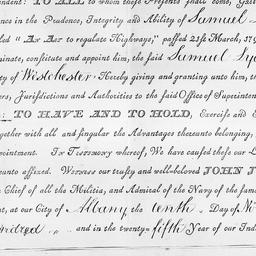 ndent: TO ALL to whom these Presents shall come, Gree
ence in the Prudence, Integrity and Ability of Samuel
led "An Act to regulate Highways," passed 21st March, 179
minate, constitute and appoint him, the said Samuel Ly
ty of Westchester Hereby giving and granting unto him, th
rs, Jurisdictions and Authorities to the said Office of Superinten
: TO HAVE AND TO HOLD, Exercise and E
ogether with all and singular the Advantages thereunto belonging,
pointment. In Testimony whereof, We have caused these our L
unto affixed. Witness our trusty and well-beloved JOHN J
Chief of all the Militia, and Admiral of the Navy of the same
t, at our City of Albany the tenth Day of No
undred and in the twenty-fifth Year of our Ind